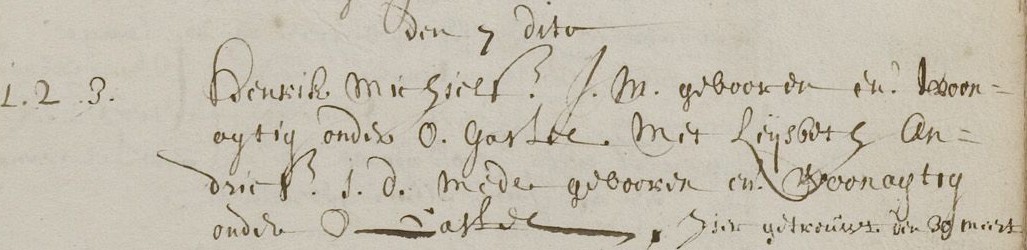 den 7 dito
1. 2. 3. Henrik Michiels? J. M. gebooren en? woon=
agtig onder O. Gastel. Met Leijsbeth An=
dries? J. d. mede gebooren en woonagtig
onder O Gastel, hier getrouwt den 30 meert